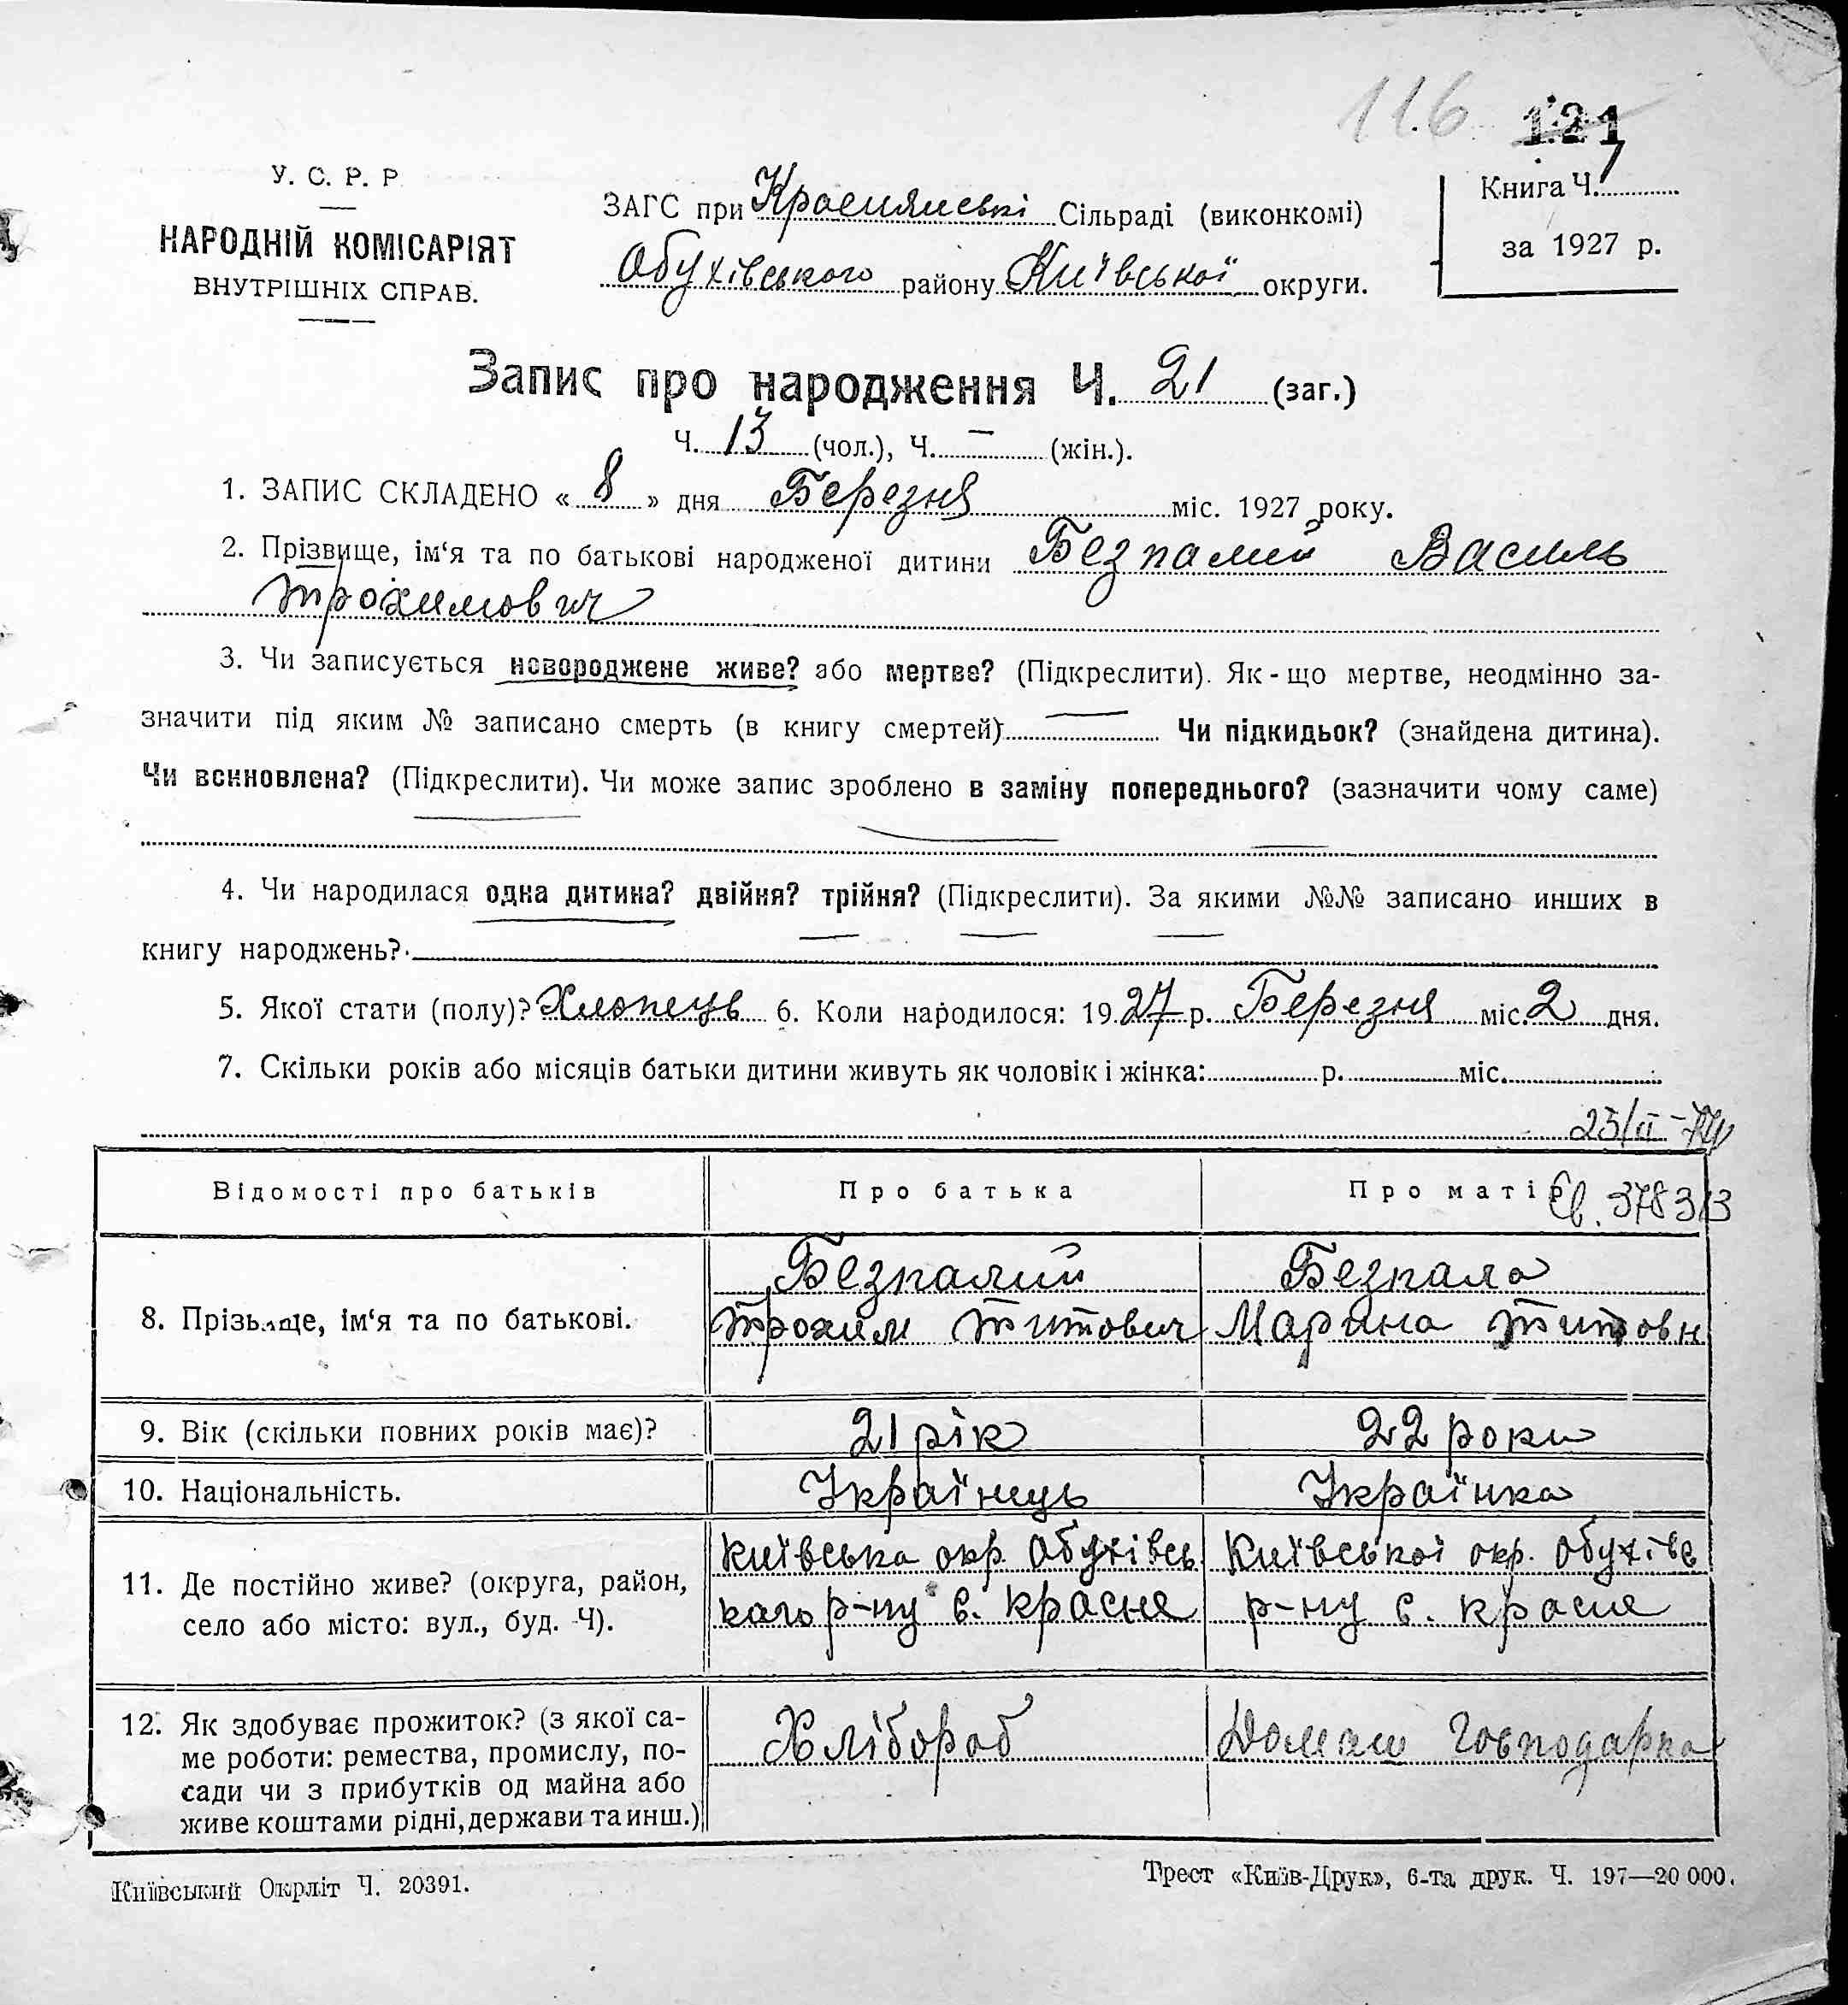 116 121
У. С. Р. Р
НАРОДНІЙ КОМІСАРІЯТ
ВНУТРІШНІХ СПРАВ.
ЗАГС при Сільраді (виконкомі)
Обухівського району Київської округи.
Книга Ч. 1
за 1927 р.
Запис про народження Ч. 21 (заг.)
Ч. 13 (чол.), Ч. — (жін.).
1. ЗАПИС СКЛАДЕНО « 8 » дня Березня міс. 1927 року.
2. Прізвище, ім‘я та по батькові народженої дитини Безпалий Василь
Трохимович
3. Чи записується новороджене живе? або мертве? (Підкреслити). Як-що мертве, неодмінно за-
значити під яким № записано смерть (в книгу смертей) — Чи підкидьок? (знайдена дитина).
Чи всиновлена? (Підкреслити). Чи може запис зроблено в заміну попереднього? (зазначити чому саме)
4. Чи народилася одна дитина? двійня? трійня? (Підкреслити). За якими №№ записано инших в
книгу народжень?
5. Якої стати (полу)? Хлопець 6. Коли народилося: 1927 р. Березня міс. 2 дня.
7. Скільки років або місяців батьки дитини живуть як чоловік і жінка: р. міс.
23/II-
Відомості про батьків Про батька Про матір
Св. 378313
8. Прізвище, ім‘я та по батькові.
Безпалий
Трохим Титович
Безпала
Марина Титовн
9. Вік (скільки повних років має)? 21 рік 22 роки
10. Національність. Українець Українка
11. Де постійно живе? (округа, район,
село або місто: вул., буд. Ч).
Київська окр. Обухівсь
кого р-ну с. Красне
Київської окр. Обухівс
р-ну с. Красне
12. Як здобуває прожиток? (з якої са-
ме роботи: ремества, промислу, по-
сади чи з прибутків од майна або
живе коштами рідні, держави та инш.)
Хлібороб
Домаш Господарка
Київський Окрліт Ч. 20391.
Трест «Київ-Друк», 6-та друк. Ч. 197—20 000.